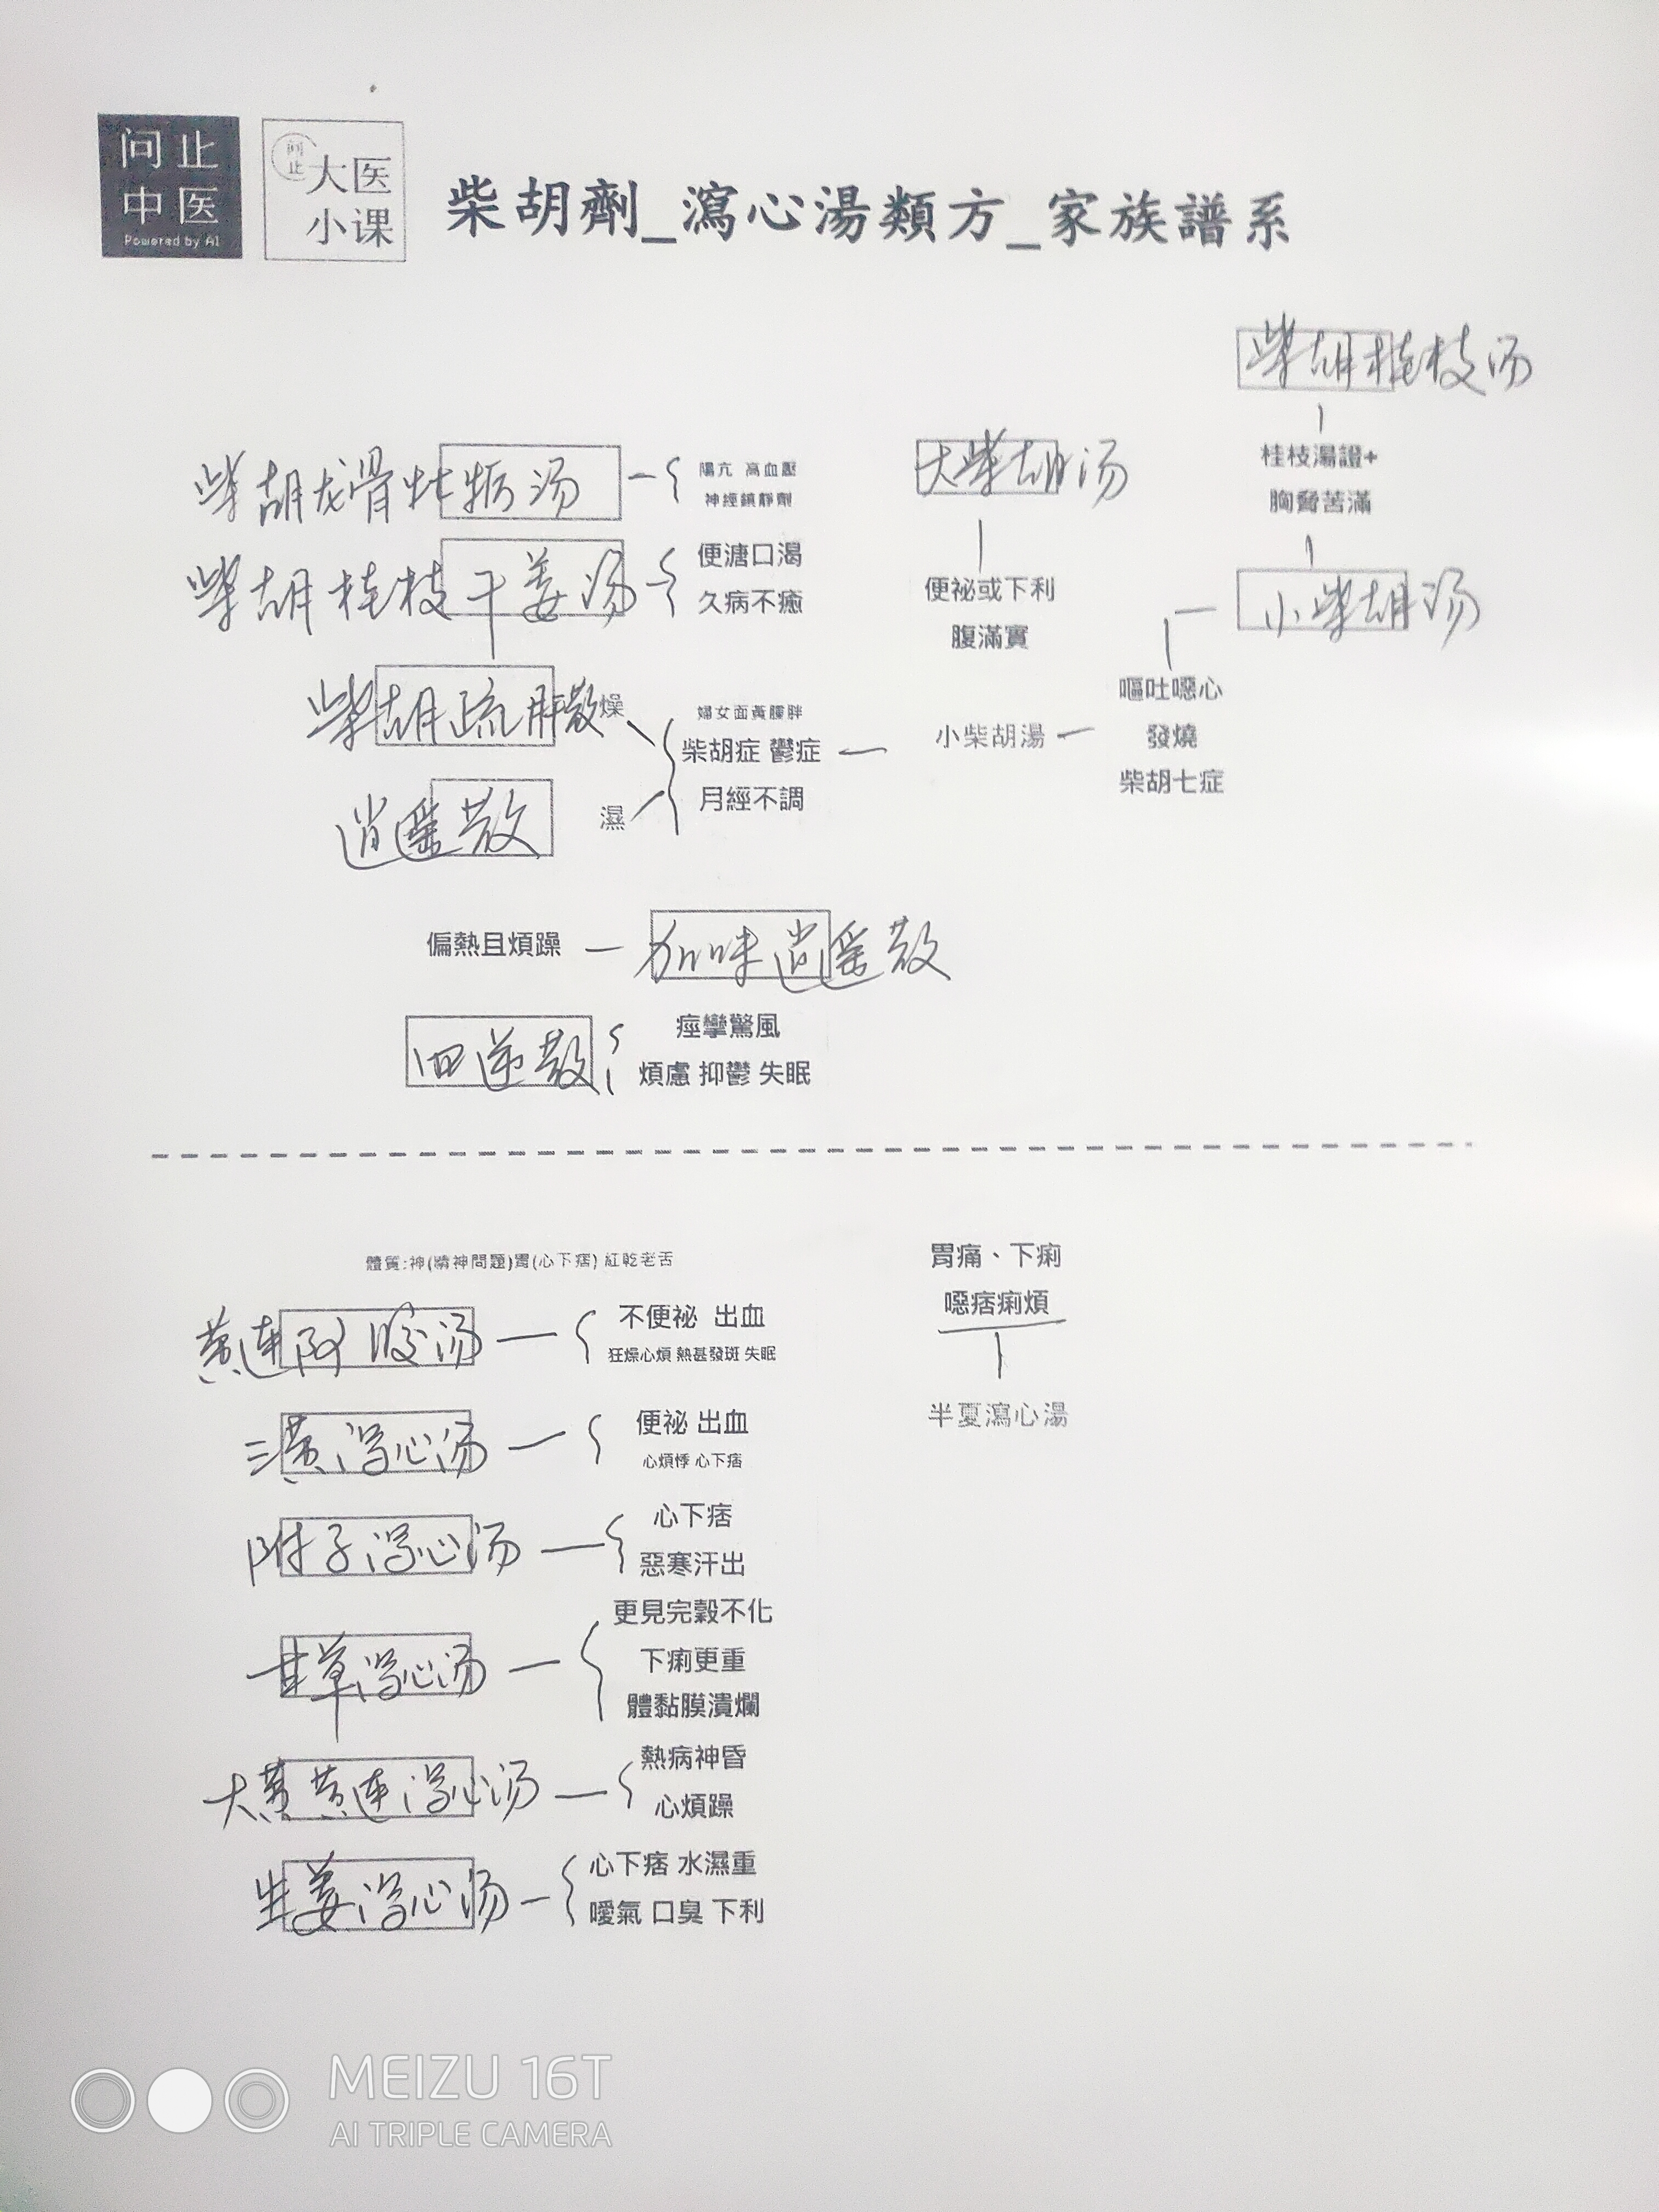 问止
中医
Powered by AI
问止
大医
小课
柴胡劑_瀉心湯類方_家族譜系
柴胡桂枝汤
桂枝湯證+
胸脅苦滿
小柴胡汤
柴胡龙骨牡蛎汤
陽亢 高血壓
神經鎮靜劑
大柴胡汤
便祕或下利
腹滿實
柴胡桂枝干姜汤
便溏口渴
久病不癒
嘔吐噁心
發燒
柴胡七症
小柴胡湯
柴胡疏肝散
燥
婦女面黃臃胖
柴胡症 鬱症
月經不調
逍遥散
濕
偏熱且煩躁
加味逍遥散
四逆散
痙攣驚風
煩慮 抑鬱 失眠
體質:神(精神問題)胃(心下痞) 紅乾老舌
胃痛、下痢
噁痞痢煩
半夏瀉心湯
黄连阿胶汤
不便祕 出血
狂燥心煩 熱甚發斑 失眠
三黄泻心汤
便祕 出血
心煩悸 心下痞
附子泻心汤
心下痞
惡寒汗出
甘草泻心汤
更見完穀不化
下痢更重
體黏膜潰爛
大黄黄连泻心汤
熱病神昏
心煩躁
生姜泻心汤
心下痞 水濕重
噯氣 口臭 下利
MEIZU 16T
AI TRIPLE CAMERA